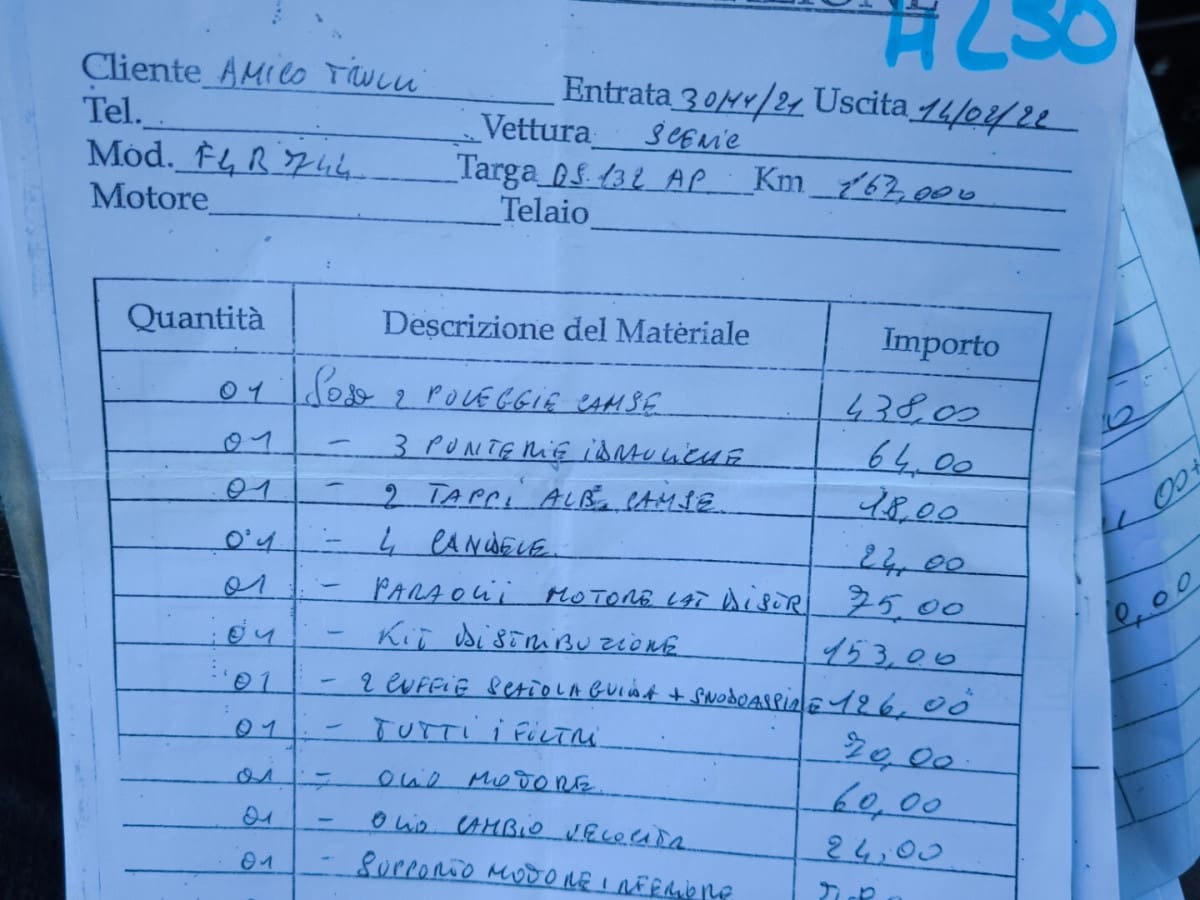 H230
Cliente AMICO Entrata 30/11/21 Uscita 14/02/22
Tel. Vettura SCENIC
Mod. F4R 744 Targa DS 132 AP Km 167,000
Motore Telaio
Quantità Descrizione del Materiale Importo
01 Sost 2 PULEGGIE CAMSE 438,00
01 - 3 PUNTERIE IDRAULICHE 64,00
01 - 2 TAPPI ALB. CAMSE 18,00
01 - 4 CANDELE 24,00
01 - PARAOLII MOTORE LAT DISTR 75,00
01 - KIT DISTRIBUZIONE 153,00
01 - 2 CUFFIE SCATOLA GUIDA + SNODO ASSIALE 126,00
01 - TUTTI I FILTRI 70,00
01 - OLIO MOTORE 60,00
01 - OLIO CAMBIO VELOCITA 24,00
01 - SUPPORTO MOTORE INFERIORE